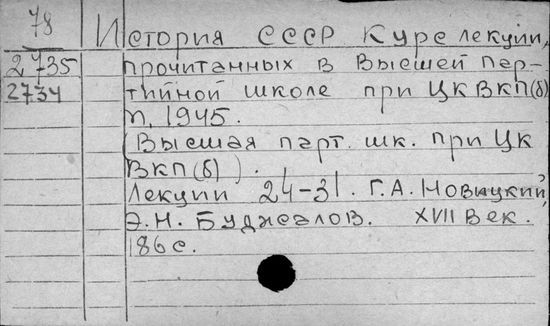 78 История СССР Курс лекций,
2735 прочитанных в Высшей пар-
2734 тийной школе при ЦК ВКП(б)
П, 1945.
(Высшая парт. шк. при ЦК
ВКП(б).
Лекции 24-31. Г.А. Новицкий,
Э.Н. Буджеалов. XVII век.
186 с.